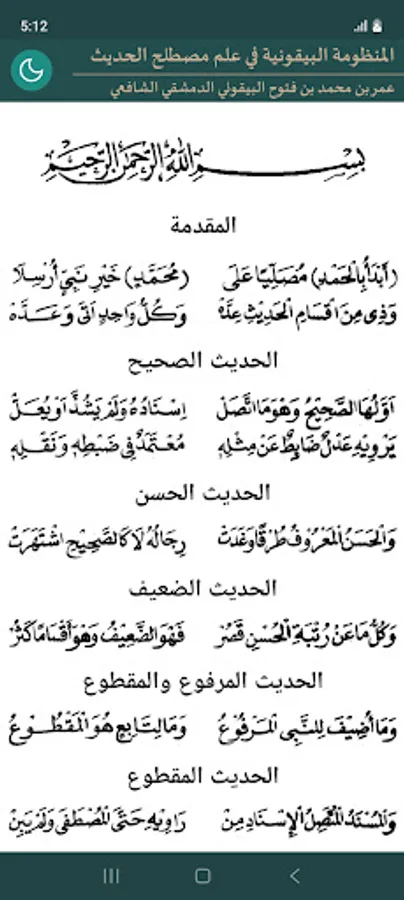 5:12
المنظومة البيقونية في علم مصطلح الحديث
عمر بن محمد بن فتوح البيقولي الدمشقي الشافعي
بِسْمِ اللَّهِ الرَّحْمَنِ الرَّحِيمِ
المقدمة
(أَبْدَأُ بِالْحَمْدِ) مُصَلِّيًا عَلَى (مُحَمَّدٍ) خَيْرِ نَبِيٍّ أُرْسِلَا
وَذِي مِنْ أَقْسَامِ الْحَدِيثِ عِدَّهْ وَكُلُّ وَاحِدٍ أَتَى وَعَدَّهْ
الحديث الصحيح
أَوَّلُهَا الصَّحِيحُ وَهْوَ مَا اتَّصَلْ إِسْنَادُهُ وَلَمْ يَشُذَّ أَوْ يُعَلْ
يَرْوِيهِ عَدْلٌ ضَابِطٌ عَنْ مِثْلِهِ مُعْتَمَدٌ فِي ضَبْطِهِ وَنَقْلِهِ
الحديث الحسن
وَالْحَسَنُ الْمَعْرُوفُ طُرْقًا وَغَدَتْ رِجَالُهُ لَا كَالصَّحِيحِ اشْتَهَرَتْ
الحديث الضعيف
وَكُلُّ مَا عَنْ رُتْبَةِ الْحُسْنِ قَصُرْ فَهْوَ الضَّعِيفُ وَهْوَ أَقْسَامًا كَثُرْ
الحديث المرفوع والمقطوع
وَمَا أُضِيفَ لِلنَّبِي الْمَرْفُوعُ وَمَا لِتَابِعٍ هُوَ الْمَقْطُوعُ
الحديث المقطوع
وَالْمُسْنَدُ الْمُتَّصِلُ الْإِسْنَادِ مِنْ رَاوِيهِ حَتَّى الْمُصْطَفَى وَلَمْ يَبِنْ